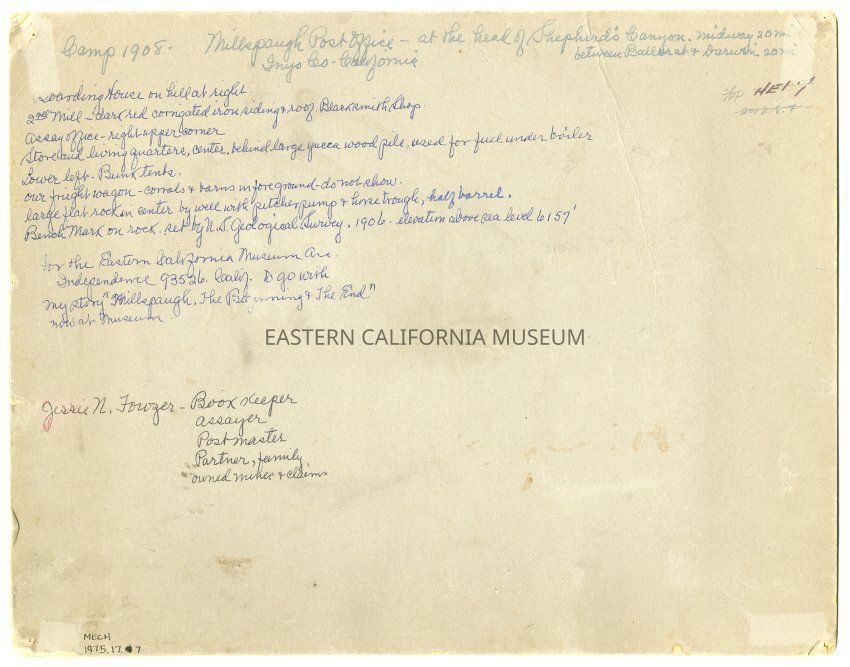 Camp 1908. Millspaugh Post Office - at the head of Shepherd's Canyon. midway 20 mi
Inyo Co - California between Ballarat & Darwin 20 mi
Boarding House on hill at right.
2nd Mill - dark red corrigated iron siding & roof. Blacksmith Shop.
Assay office - right upper corner
Store and living quarters, center, behind large yucca wood pile, used for fuel under boiler
Lower left - Bunk tents.
our freight wagon - corrals & barns in foreground - do not show.
large flat rock in center by well with pitcher pump & horse trough, half barrel.
Bench Mark on rock. set by U.S. Geological Survey. 1906. elevation above sea level 6157'
For the Eastern California Museum Ass.
Independence 93526. Calif. to go with
my story "Millspaugh, The Beginning & The End"
now at Museum
EASTERN CALIFORNIA MUSEUM
Jessie N. Fowzer - Book Keeper
assayer
Postmaster
Partner, family
owned mines & claims
MECH
1975.17.7